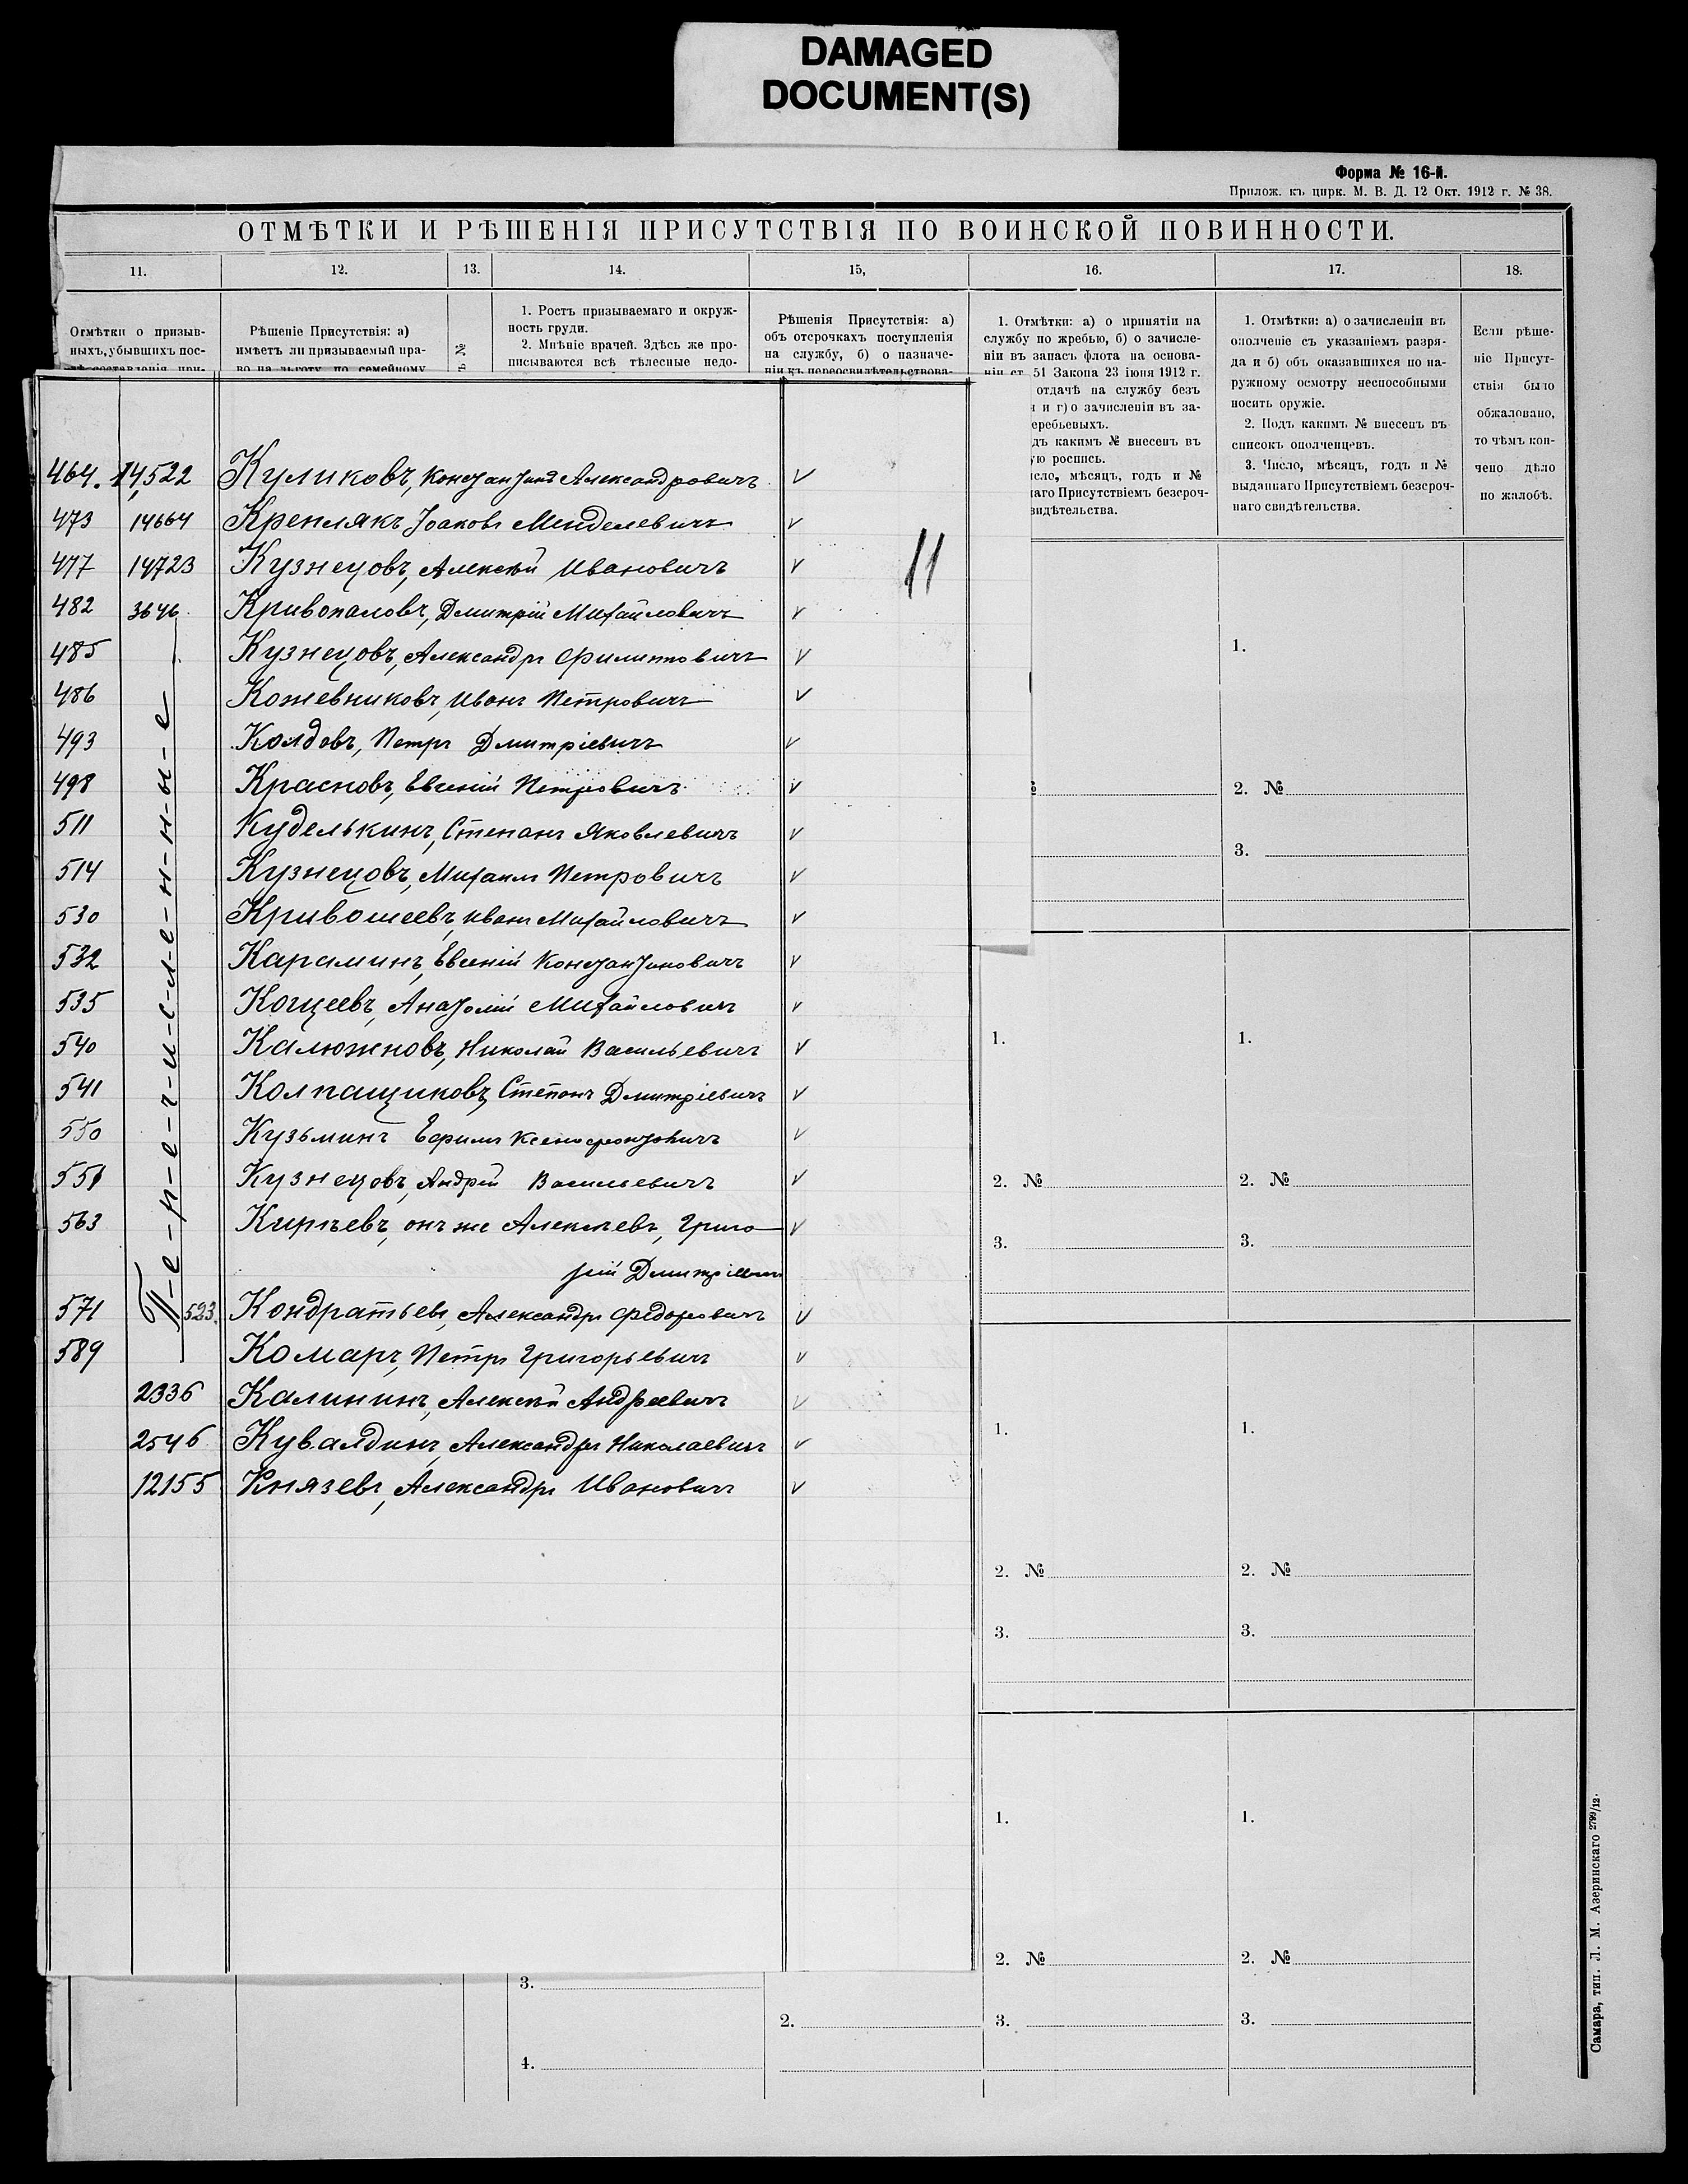 DAMAGED
DOCUMENT(S)
Форма № 16-й.
Прилож. къ цирк. М. В. Д. 12 Окт. 1912 г. № 38.
ОТМѢТКИ И РѢШЕНІЯ ПРИСУТСТВІЯ ПО ВОИНСКОЙ ПОВИННОСТИ.
11. 12. 13. 14. 15, 16. 17. 18.
Отмѣтки о призыв-
ныхъ, убывшихъ пос-
лѣ составленія при-
Рѣшеніе Присутствія: а)
имѣетъ ли призываемый пра-
во на льготу по семейному
ъ №
1. Ростъ призываемаго и окруж-
ность груди.
2. Мнѣніе врачей. Здѣсь же про-
писываются всѣ тѣлесные недо-
Рѣшенія Присутствія: а)
объ отсрочкахъ поступленія
на службу, б) о назначе-
ніи къ переосвидѣтельствова-
1. Отмѣтки: а) о принятіи на
службу по жребью, б) о зачисле-
ніи въ запасъ флота на основа-
ніи ст. 51 Закона 23 іюня 1912 г.
отдачѣ на службу безъ
и г) о зачисленіи въ за-
еребьевыхъ.
дъ какимъ № внесенъ въ
ую роспись.
исло, мѣсяцъ, годъ и №
наго Присутствіемъ безсроч-
видѣтельства.
1. Отмѣтки: а) о зачисленіи въ
ополченіе съ указаніемъ разря-
да и б) объ оказавшихся по на-
ружному осмотру неспособными
носить оружіе.
2. Подъ какимъ № внесенъ въ
списокъ ополченцевъ.
3. Число, мѣсяцъ, годъ и №
выданнаго Присутствіемъ безсроч-
наго свидѣтельства.
Если рѣше-
ніе Присут-
ствія было
обжаловано,
то чѣмъ кон-
чено дѣло
по жалобѣ.
464. 14,522 Куликовъ, Константинъ Александровичъ
473 14664 Креплякъ Іоаковъ Менделевичъ
477 14723 Кузнецовъ, Алексѣй Ивановичъ
11
482 3646 Кривопаловъ, Дмитрій Михайловичъ
485 Кузнецовъ, Александръ Филипповичъ
486 Кожевниковъ, Иванъ Петровичъ
493 Колдовъ, Петръ Дмитріевичъ
498 Красновъ, Евгеній Петровичъ
511 Куделькинъ, Степанъ Яковлевичъ
514 Кузнецовъ, Михаилъ Петровичъ
530 Кривошеевъ, Иванъ Михайловичъ
532 Карамшинъ, Евгеній Константиновичъ
535 Кощеевъ, Анатолій Михайловичъ
540 Калюжновъ, Николай Васильевичъ
541 Колпащиковъ, Степанъ Дмитріевичъ
550 Кузьминъ Ефимъ Ксенофонтовичъ
551 Кузнецовъ, Андрей Васильевичъ
563 Кирѣевъ, онъ же Алексѣевъ, Григо
рій Дмитріевичъ
П-е-р-е-ч-и-с-л-е-н-н-ы-е
571 523. Кондратьевъ, Александръ Федоровичъ
589 Комаръ, Петръ Григорьевичъ
2336 Калининъ, Алексѣй Андреевичъ
2546 Кувалдинъ, Александръ Николаевичъ
12155 Князевъ, Александръ Ивановичъ
1.
2. №
3.
1. 1.
2. № 2. №
3. 3.
1. 1.
2. № 2. №
3. 3.
1. 1.
2. № 2. №
3.
2. 3. 3.
4.
Самара, тип. Л. М. Азеринскаго 2799/12.